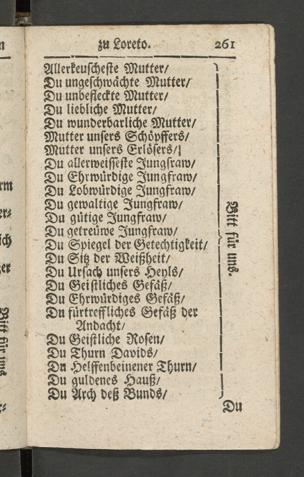 zu Loreto. 261
Allerkeuscheste Mutter/
Du ungeschwächte Mutter/
Du unbefleckte Mutter/
Du liebliche Mutter/
Du wunderbarliche Mutter/
Mutter unsers Schöpffers/
Mutter unsers Erlösers/
Du allerweisseste Jungfraw/
Du Ehrwürdige Jungfraw/
Du Lobwürdige Jungfraw/
Du gewaltige Jungfraw/
Du gütige Jungfraw/
Du getreüwe Jungfraw/
Du Spiegel der Gerechtigkeit/
Du Sitz der Weißheit/
Du Ursach unsers Heyls/
Du Geistliches Gefäß/
Du Ehrwürdiges Gefäß/
Du fürtreffliches Gefäß der
Andacht/
Du Geistliche Rosen/
Du Thurn Davids/
Du Helffenbeinener Thurn/
Du guldenes Hauß/
Du Arch deß Bunds/
Bitt für uns.
Du